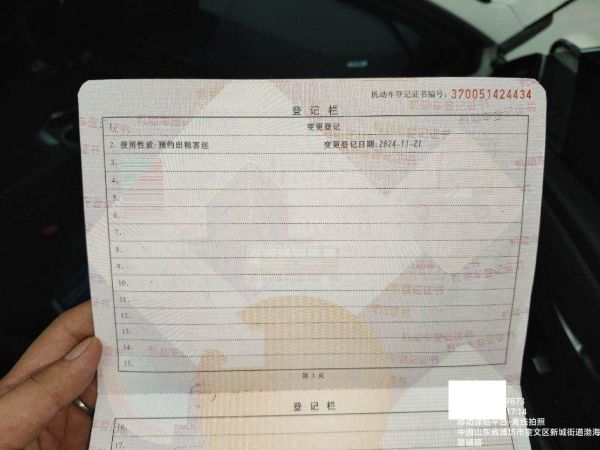 机动车登记证书编号：370051424434
登 记 栏
1. 变更登记
2. 使用性质：预约出租客运 变更登记日期：2024-11-21
3.
4.
5.
6.
7.
8.
9.
10.
11.
12.
13.
14.
15.
第 3 页
登 记 栏
16.
17.
9873
17:14
中国山东省潍坊市奎文区新城街道渤海